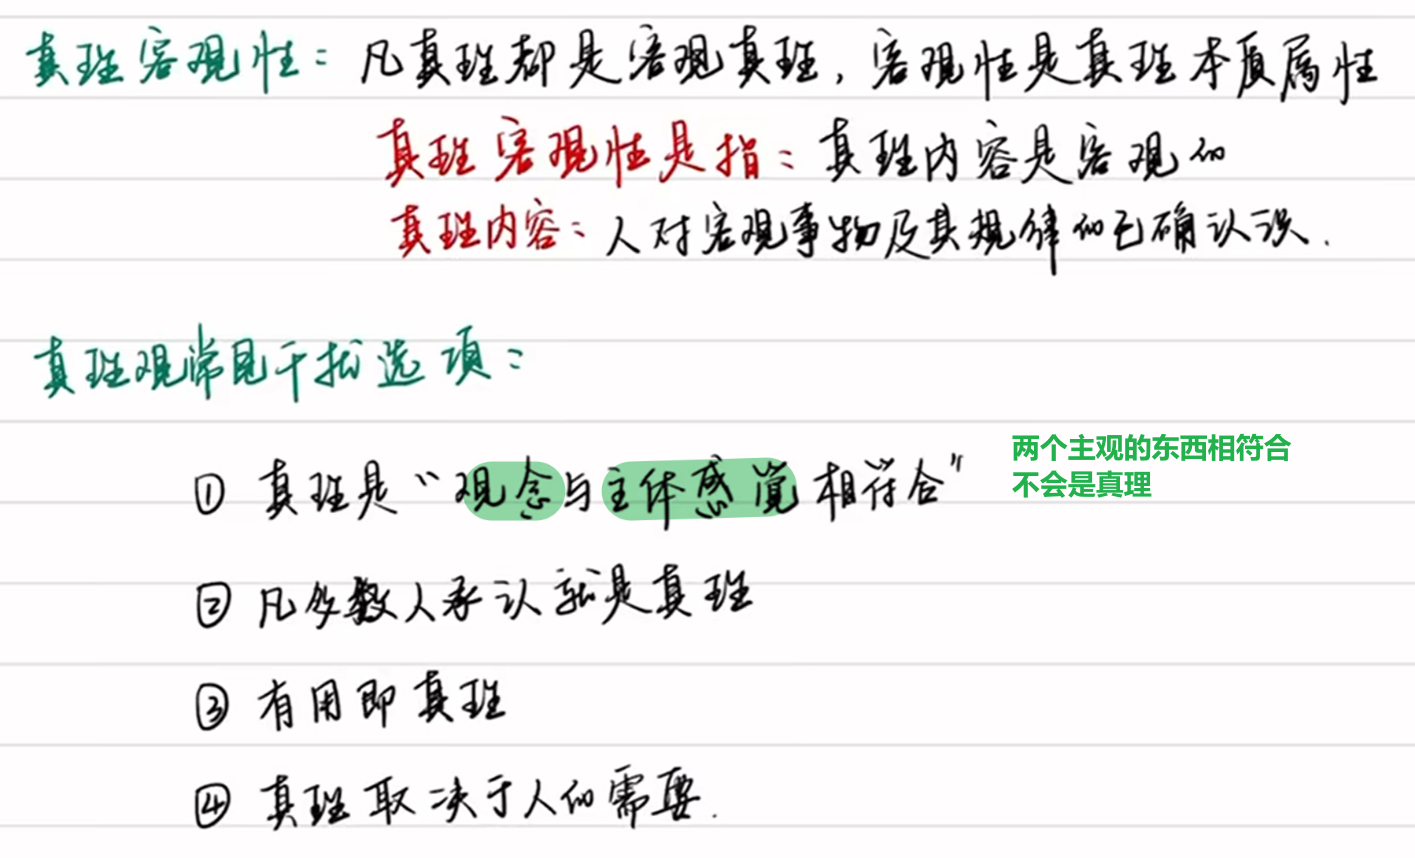 真理客观性：凡真理都是客观真理，客观性是真理本质属性
真理客观性是指：真理内容是客观的
真理内容：人对客观事物及其规律的正确认识.
真理观常见干扰选项：
① 真理是“观念与主体感觉相符合”
两个主观的东西相符合
不会是真理
② 凡多数人承认就是真理
③ 有用即真理
④ 真理取决于人的需要.